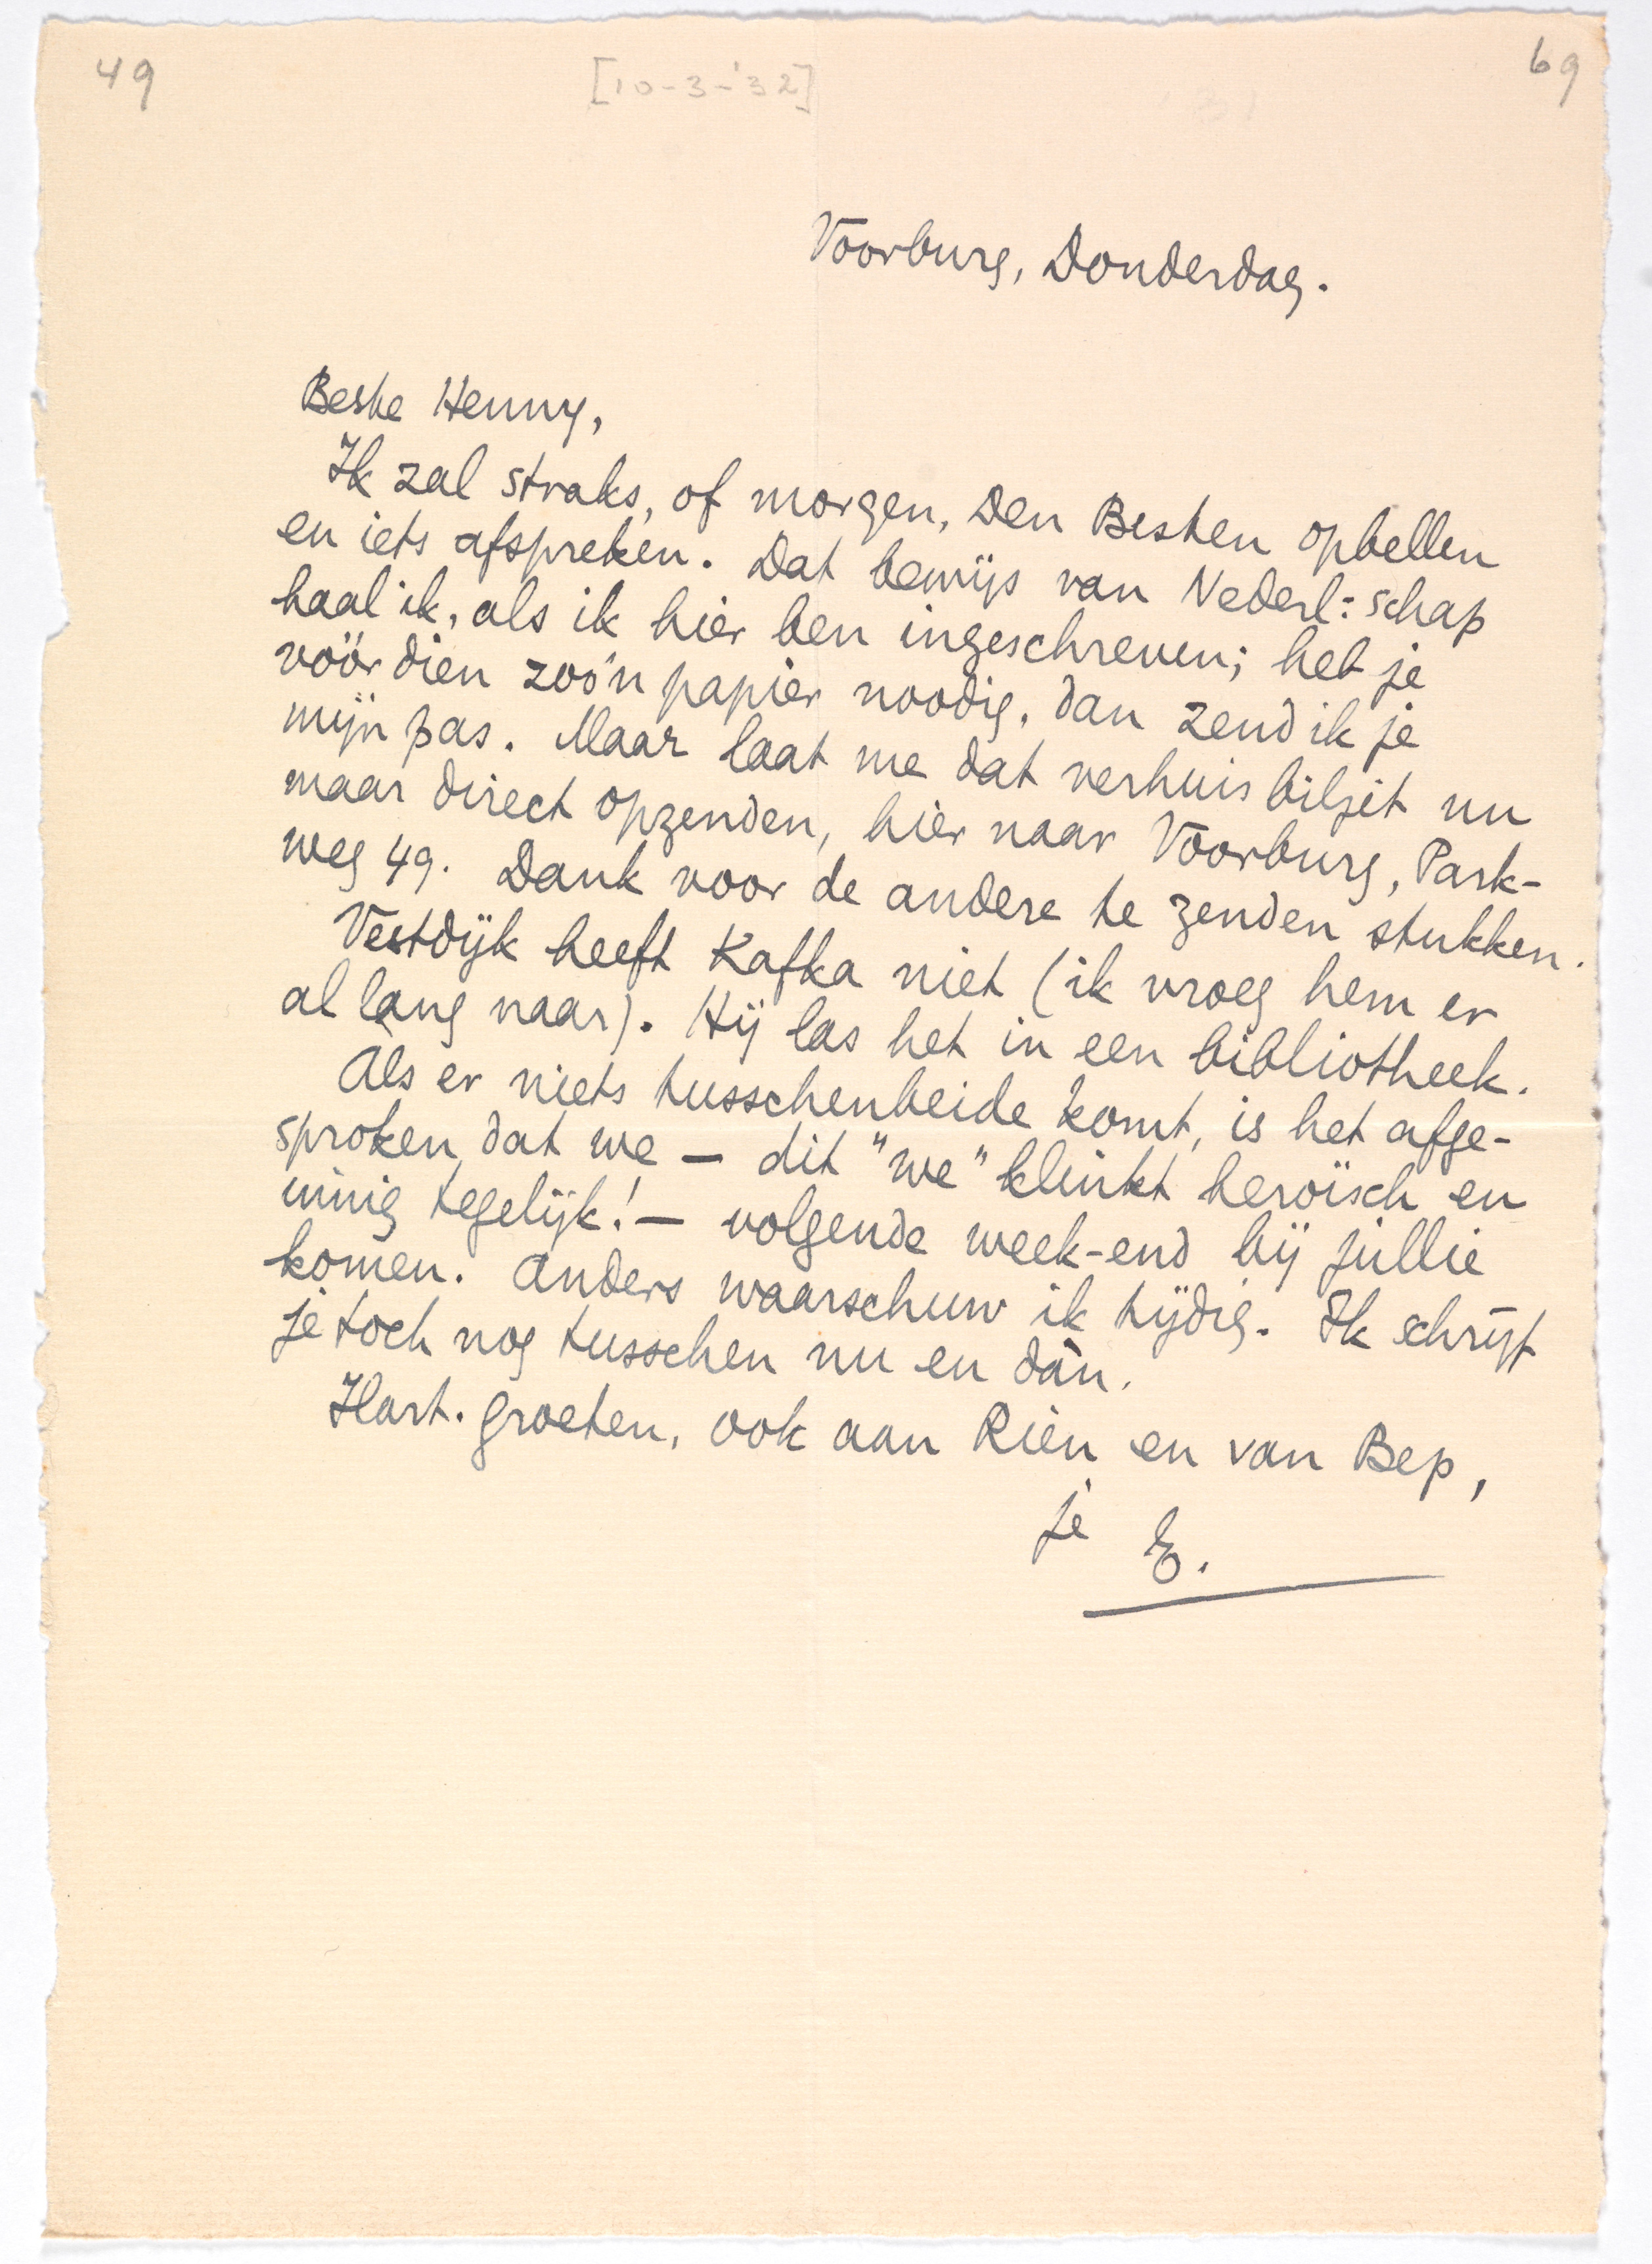 49 [10-3-'32] 69
Voorburg, Donderdag.
Beste Henny,
Ik zal straks, of morgen, Den Besten opbellen
en iets afspreken. Dat bewijs van Nederl:schap
haal ik, als ik hier ben ingeschreven; heb je
vóór dien zoo'n papier noodig, dan zend ik je
mijn pas. Maar laat me dat verhuisbiljet nu
maar direct opzenden, hier naar Voorburg, Park-
weg 49. Dank voor de andere te zenden stukken.
Vestdijk heeft Kafka niet (ik vroeg hem er
al lang naar). Hij las het in een bibliotheek.
Als er niets tusschenbeide komt, is het afge-
sproken dat we — dit "we" klinkt heroïsch en
innig tegelijk! — volgende week-end bij jullie
komen. Anders waarschuw ik tijdig. Ik schrijf
je toch nog tusschen nu en dàn.
Hart. groeten, ook aan Rien en van Bep,
je E.